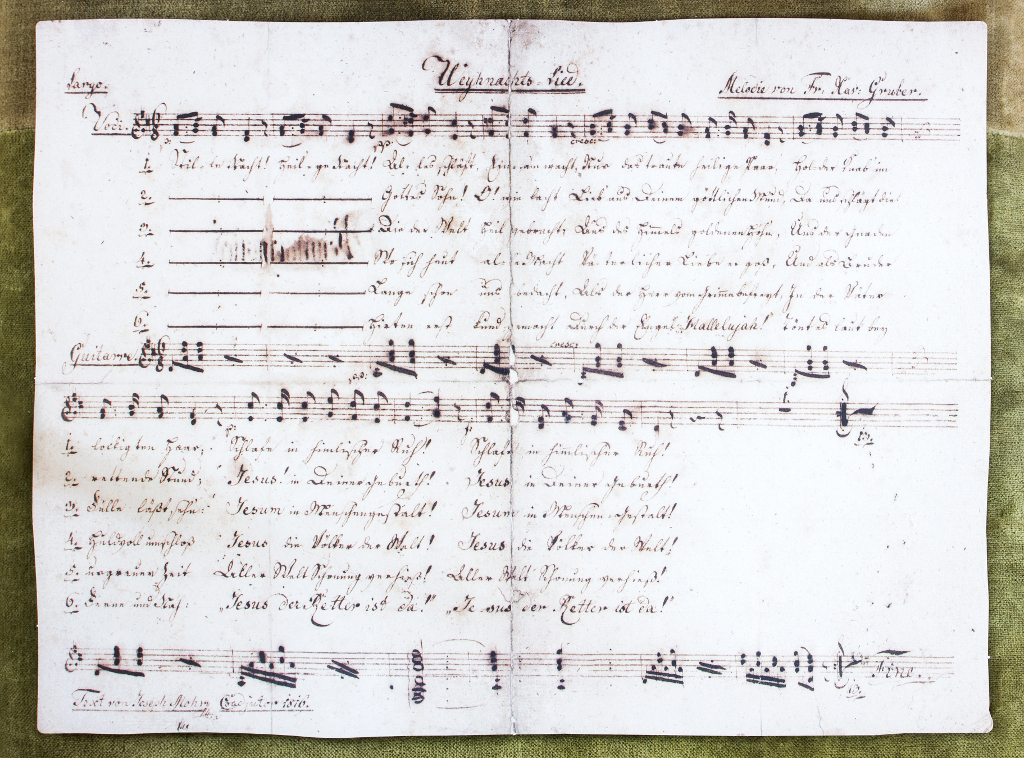 Weyhnachts-Lied.
Largo.
Melodie von Fr. Xav: Gruber.
Voci.
cresc:
1. Stille Nacht! Heilige Nacht! Alles schläft. Einsam wacht, Nur das traute heilige Paar, Holder Knab im
2. Gottes Sohn! O! wie lacht Lieb aus Deinem göttlichen Mund, Da uns schlägt die
3. Die der Welt Heil gebracht; Aus des Himmels goldenen Höhn, Aus der Gnaden
4. Wo sich heut alle Macht Väterlicher Liebe ergoß, Und als Bruder
5. Lange schon uns bedacht, Als der Herr vom Grimme befreyt, In der Väter
6. Hirten erst kund gemacht Durch der Engel Hallelujah! Tönt es laut bey
Guitarre.
cresc:
1. lockigten Haar; Schlafe in himlischer Ruh! Schlafe in himlischer Ruh!
2. rettende Stund; Jesus! in Deiner Geburth! Jesus in Deiner Geburth!
3. Fülle läßt sehn: Jesum in Menschengestalt! Jesum in Menschengestalt!
4. Huldvoll umschloß Jesus die Völker der Welt! Jesus die Völker der Welt!
5. urgrauer Zeit Aller Welt Schonung verhieß! Aller Welt Schonung verhieß!
6. Ferne und Nah: „Jesus der Retter ist da!" „Jesus der Retter ist da!"
Fine.
Text von Joseph Mohr Coadjutor 1816.